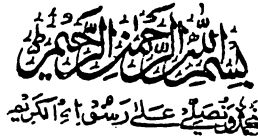 بِسْمِ اللهِ الرَّحْمٰنِ الرَّحِيْمِ
نحمده ونصلے علیٰ رسولہٖ الکریم